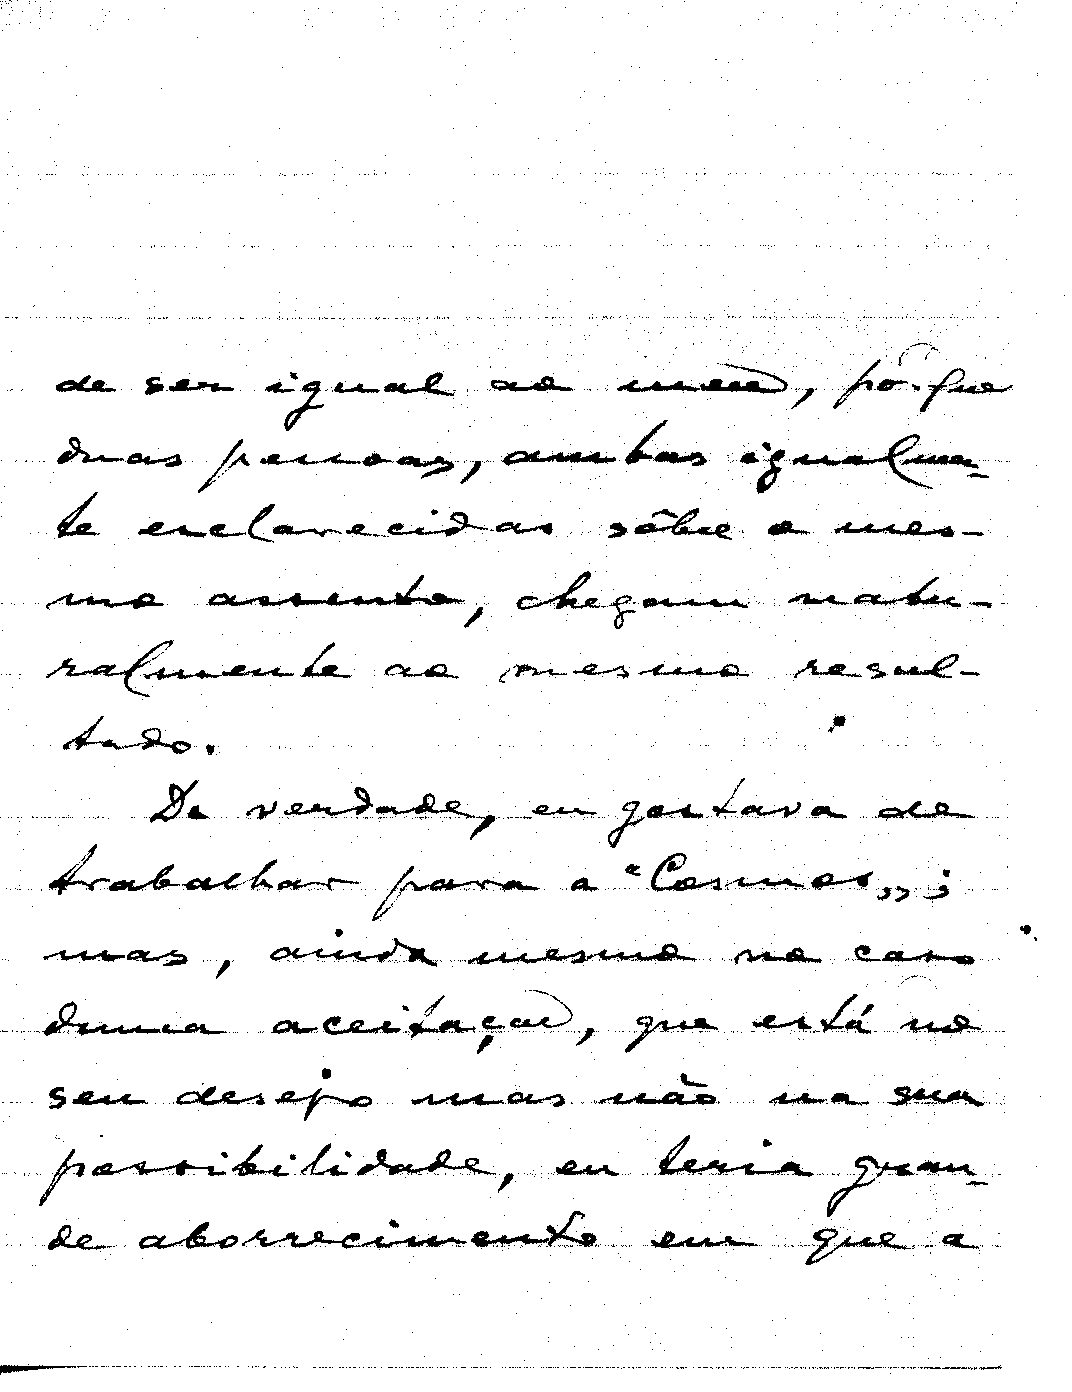 de ser igual ao meu, pòrque
duas pessoas, ambas igualmen-
te esclarecidas sôbre o mes-
mo assunto, chegam natu-
ralmente ao mesmo resul-
tado.
De verdade, eu gostava de
trabalhar para a "Cosmos„;
mas, ainda mesmo no caso
duma aceitaçao, que está no
seu desejo mas não na sua
possibilidade, eu teria gran-
de aborrecimento em que a